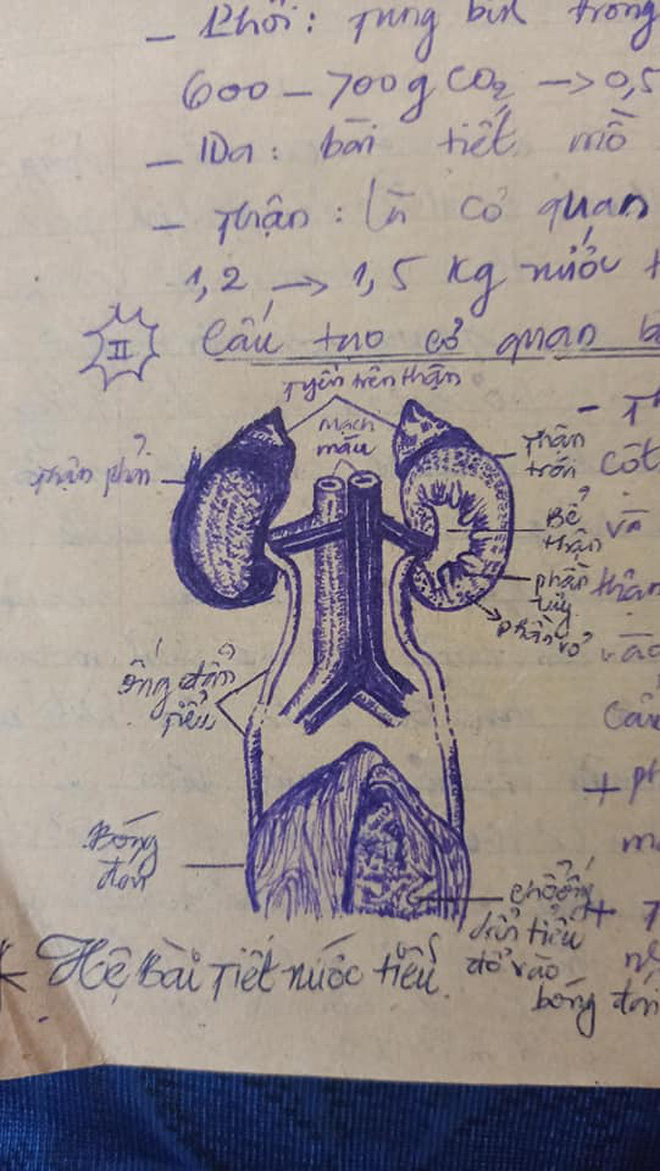 - Phổi: Trung bình trong
600 - 700g CO₂ -> 0,5
- Da: bài tiết mồ
- Thận: là cơ quan
1,2 -> 1,5 kg nước
II Cấu tạo cơ quan
Tuyến trên thận
Mạch
máu
Thận phải
Thận
trái
cột
Bể
thận
và
phần
tủy
thận
phần vỏ
vào
Ống dẫn
tiểu
+ ph
Bóng
đái
chỗ ống
dẫn tiểu
đổ vào
bóng đái
* Hệ Bài Tiết nước tiểu.